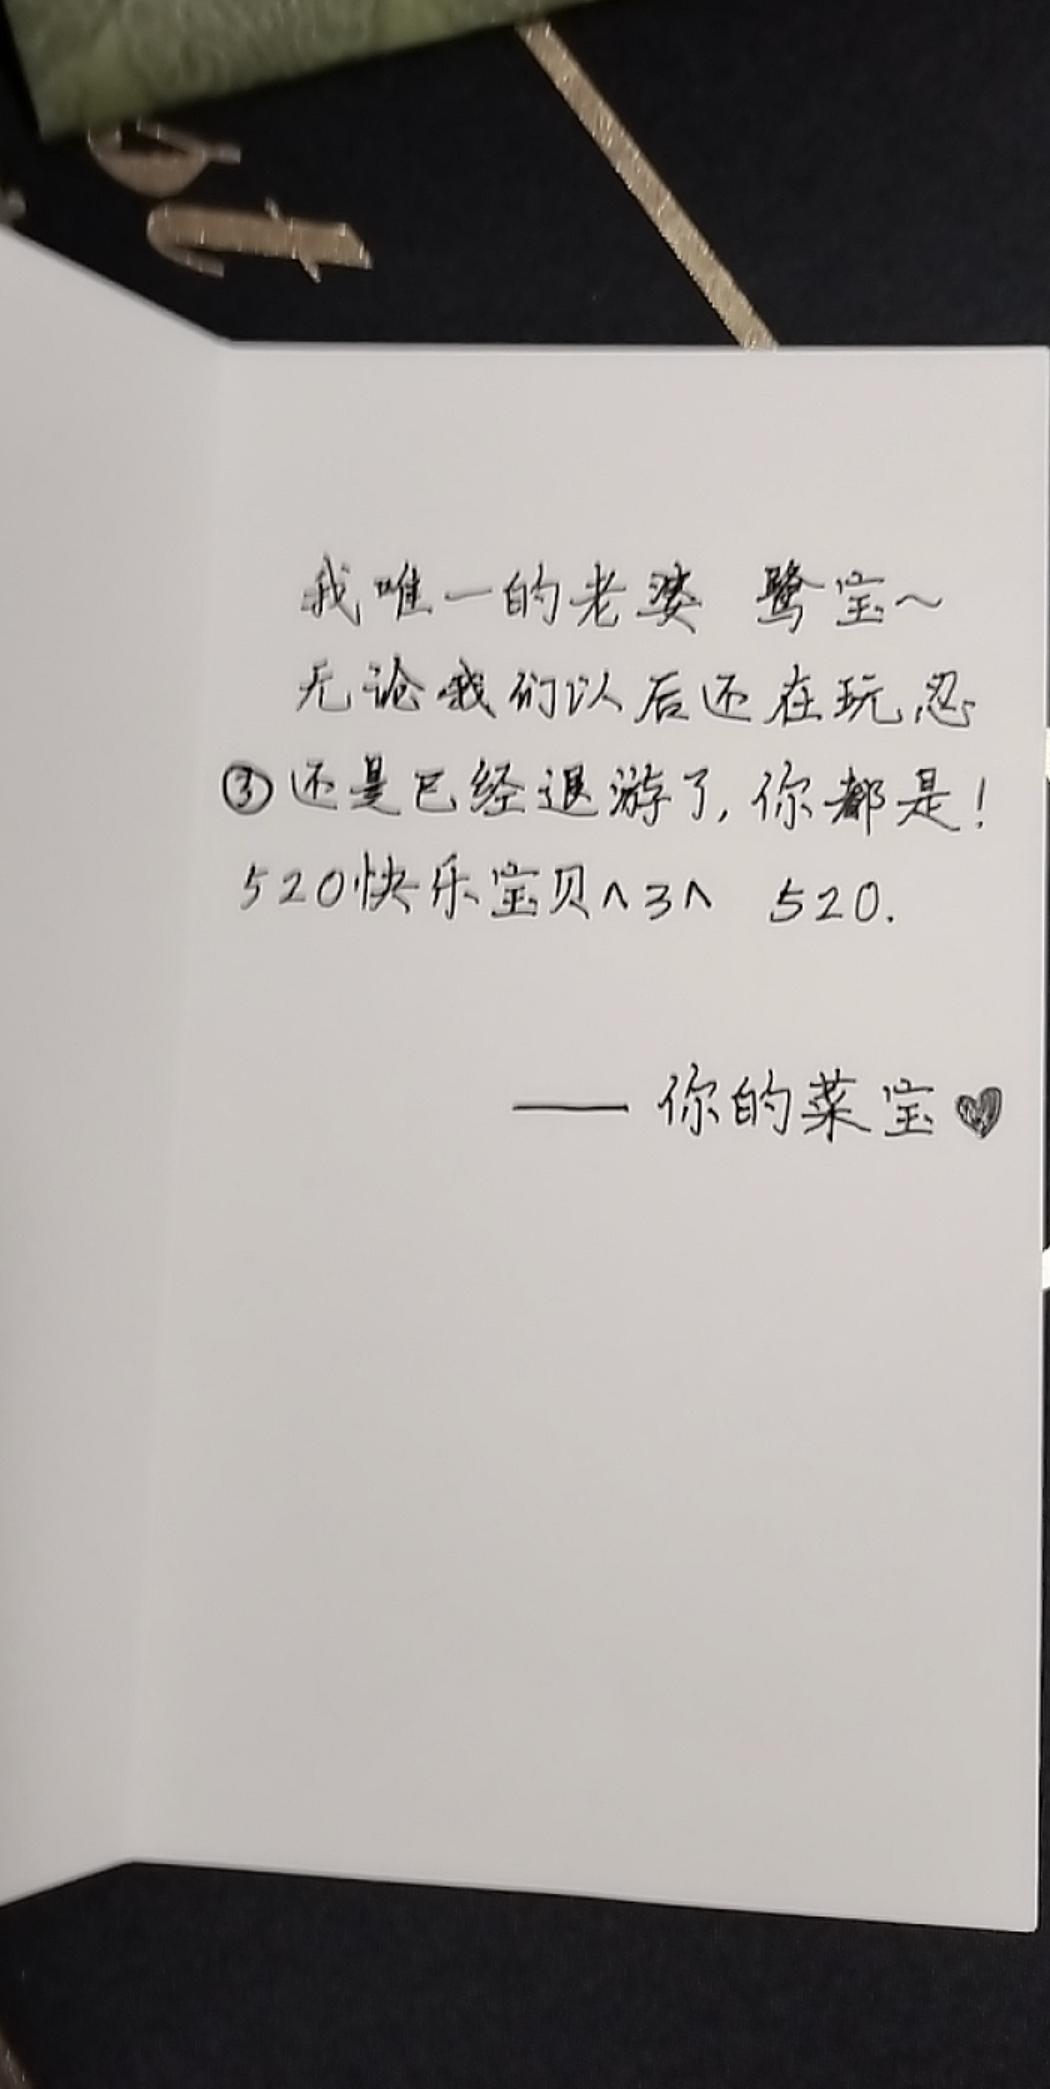 我唯一的老婆 鹭宝～
无论我们以后还在玩忍
③还是已经退游了,你都是!
520快乐宝贝^3^ 520.
——你的菜宝♥